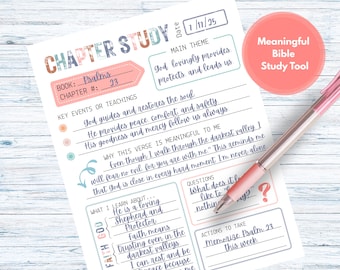 CHAPTER STUDY
Date
1/11/25
BOOK: Psalms
CHAPTER #: 23
MAIN THEME
God lovingly provides
protects and leads us
KEY EVENTS OR TEACHINGS
God guides and restores the soul.
He provides peace, comfort, and safety
His goodness and mercy follow us always
WHY THIS VERSE IS MEANINGFUL TO ME
Even though I walk through the darkest valley, I
will fear no evil, for you are with me." This reminds me
that God is close in every hard moment. I'm never alone
WHAT I LEARN ABOUT
GOD
He is a loving
Shepherd and
Protector
FAITH
Faith means
trusting even in the
darkest valleys
I can rest and be
because
QUESTIONS
What does it
like to
nothing
?
ACTIONS TO TAKE
Memorize Psalm 23
this week
Meaningful
Bible
Study Tool